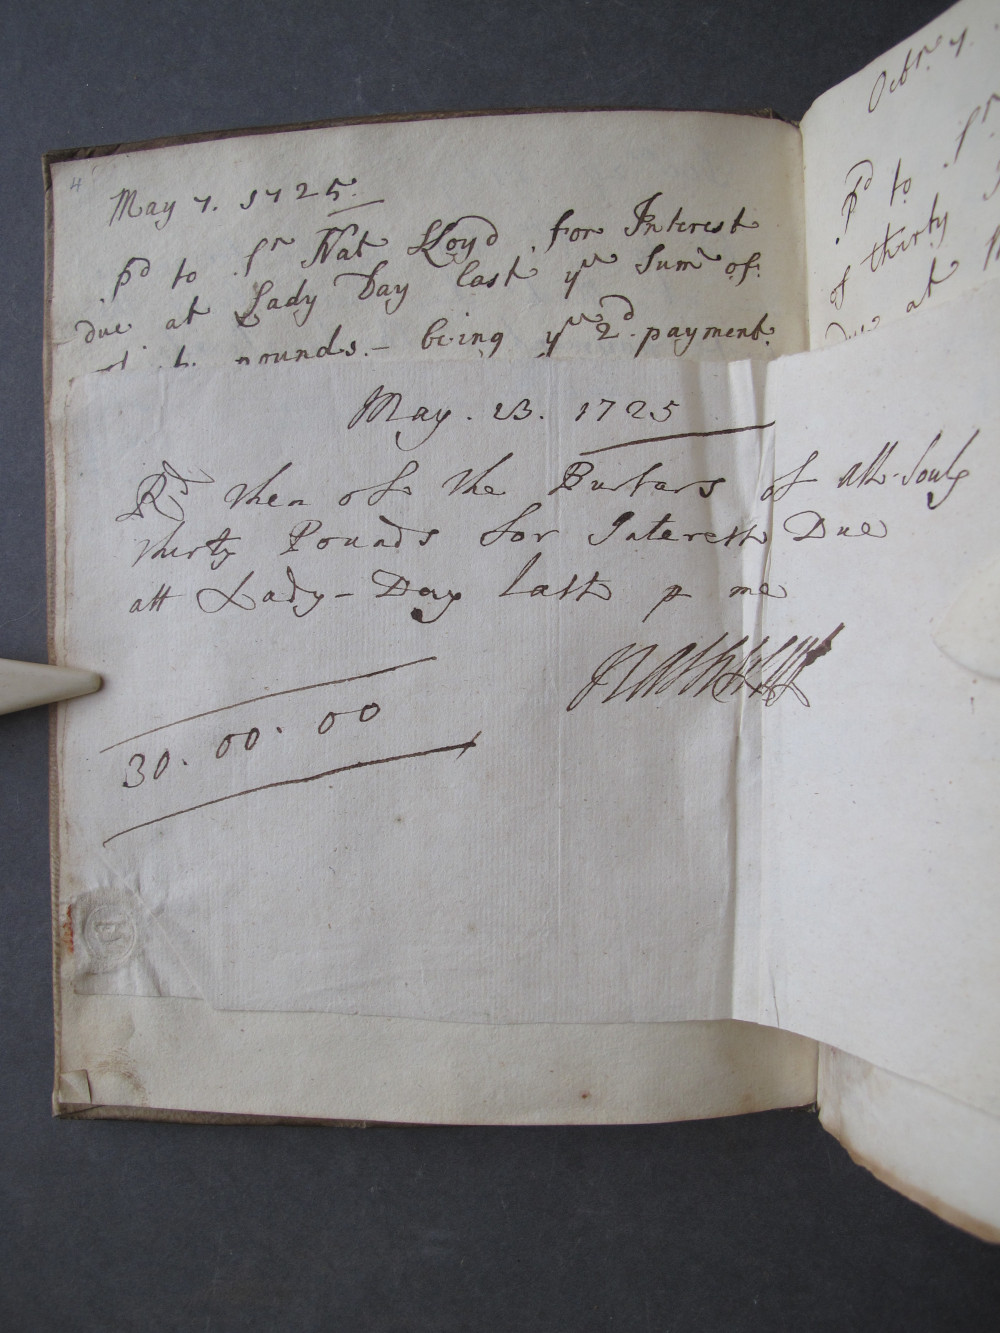 4
May 7. 1725.
pd to Sr Nat Lloyd for Interest
due at Lady Day last ye Sume of
pounds. – being ye 2d payment
May. 23. 1725
Rd then of the Bursars of All-Souls
thirty Pounds for Interest Due
att Lady-Day last p me
30. 00. 00
Octbr 7.
pd to Sr
of thirty
Due at